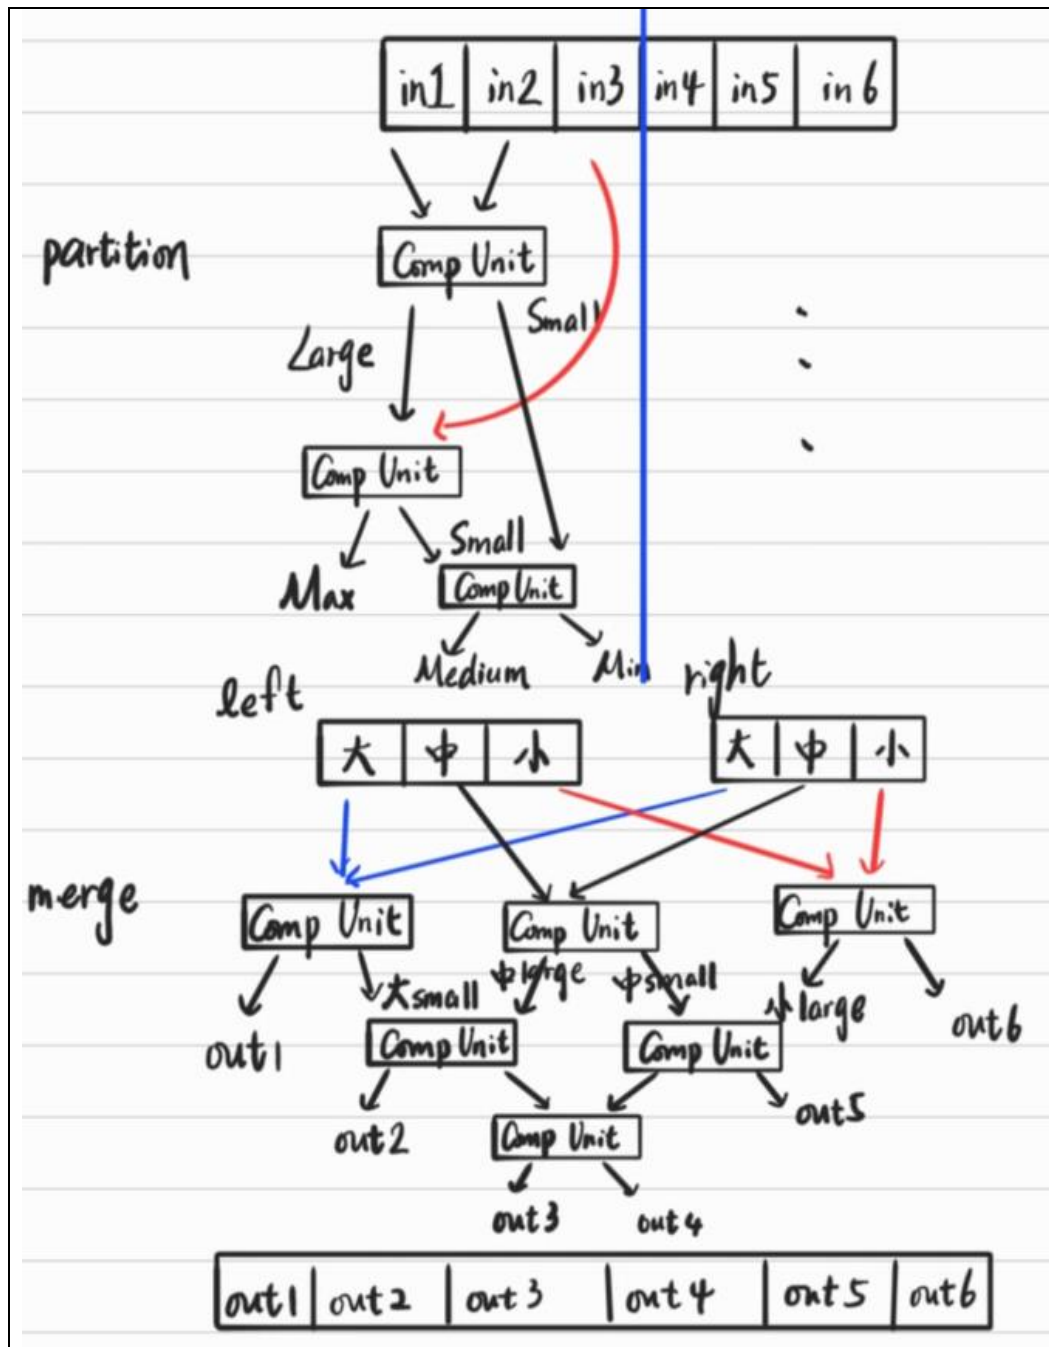 in1 in2 in3 in4 in5 in6
partition
Comp Unit
Small
Large
Comp Unit
Small
Max
Comp Unit
Medium Min
left right
大 中 小 大 中 小
merge
Comp Unit Comp Unit Comp Unit
大small 中large 中small 小large
out1 out6
Comp Unit Comp Unit
out2 out5
Comp Unit
out3 out4
out1 out2 out3 out4 out5 out6